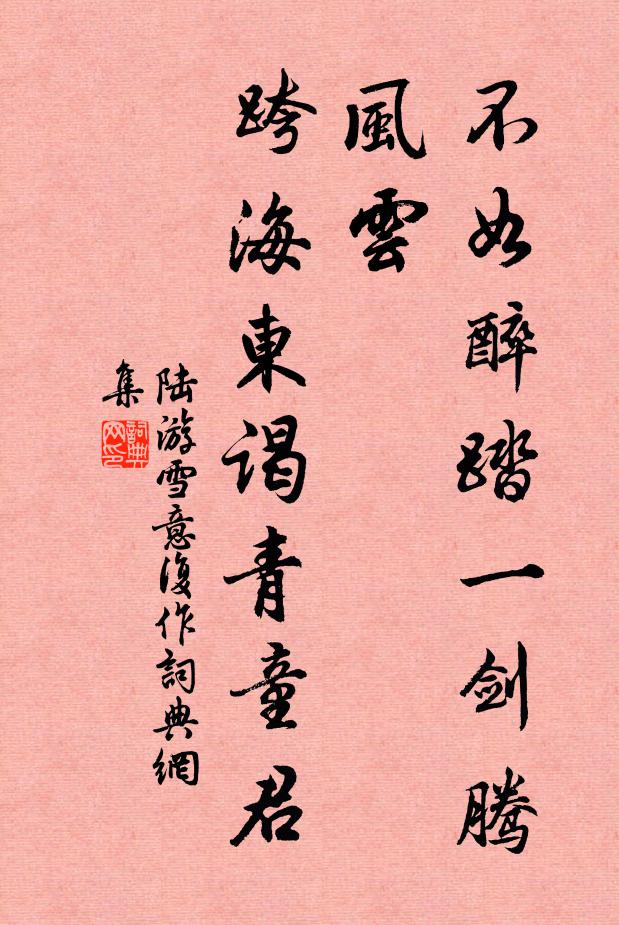 不如醉踏一剑腾
風雲
跨海東谒青童君
陆游雪意復作詞典網
集
詞典
网印